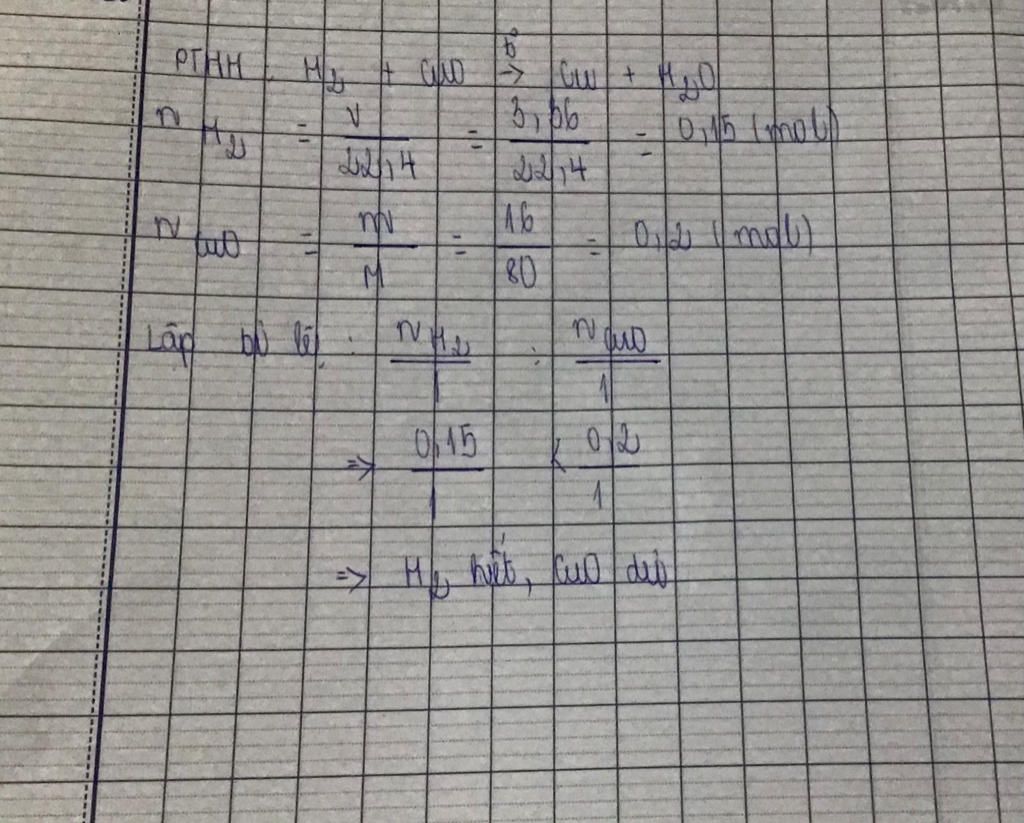 PTHH: H₂ + CuO t° → Cu + H₂O
n H₂ = V/22,4 = 3,36/22,4 = 0,15 (mol)
n CuO = m/M = 16/80 = 0,2 (mol)
Lập tỉ lệ: n H₂/1 : n CuO/1
=> 0,15/1 < 0,2/1
=> H₂ hết, CuO dư